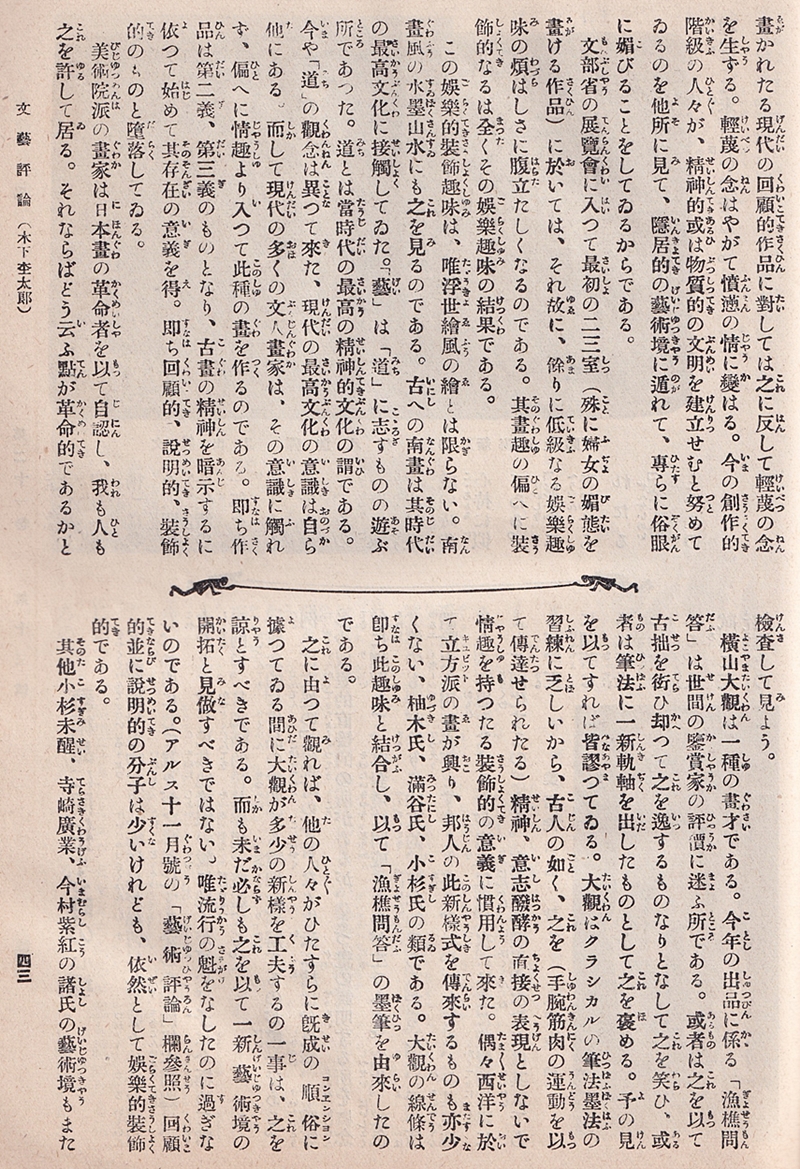 畫かれたる現代の回顧的作品に對しては之に反して輕蔑の念
を生ずる。輕蔑の念はやがて憤懣の情に變はる。今の創作的
階級の人々が、精神的或は物質的の文明を建立せむと努めて
ゐるのを他所に見て、隱居的の藝術境に遁れて、專らに俗眼
に媚びることをしてゐるからである。
文部省の展覽會に入つて最初の二三室(殊に婦女の媚態を
畫ける作品)に於いては、それ故に、餘りに低級なる娯樂趣
味の煩はしさに腹立たしくなるのである。其畫趣の偏へに裝
飾的なるは全くその娯樂趣味の結果である。
この娯樂的裝飾趣味は、唯浮世繪風の繪とは限らない。南
畫風の水墨山水にも之を見るのである。古への南畫は其時代
の最高文化に接觸してゐた。「藝」は「道」に志すものの遊ぶ
所であつた。道とは當時代の最高の精神的文化の謂である。
今や「道」の觀念は異つて來た、現代の最高文化の意識は自ら
他にある。而して現代の多くの文人畫家は、その意識に觸れ
ず、偏へに情趣より入つて此種の畫を作るのである。即ち作
品は第二義、第三義のものとなり、古畫の精神を暗示するに
依つて始めて其存在の意義を得。即ち回顧的、説明的、裝飾
的のものと墮落してゐる。
美術院派の畫家は日本畫の革命者を以て自認し、我も人も
之を許して居る。それならばどう云ふ點が革命的であるかと
檢査して見よう。
横山大觀は一種の畫才である。今年の出品に係る「漁樵問
答」は世間の鑒賞家の評價に迷ふ所である。或者は之を以て
古拙を衒ひ却つて之を逸するものなりとなして之を笑ひ、或
者は筆法に一新軌軸を出したものとして之を褒める。予の見
を以てすれば皆謬つてゐる。大觀はクラシカルの筆法墨法の
習練に乏しいから、古人の如く、之を(手腕筋肉の運動を以
て傳達せられたる)精神、意志醱酵の直接の表現としないで
情趣を持つたる裝飾的の意義に慣用して來た。偶々西洋に於
て立方派の畫が興り、邦人の此新樣式を傳來するものも亦少
くない、柚木氏、滿谷氏、小杉氏の類である。大觀の線條は
卽ち此趣味と結合し、以て「漁樵問答」の墨筆を由來したの
である。
之に由つて觀れば、他の人々がひたすらに旣成の順俗に
據つてゐる間に大觀が多少の新樣を工夫するの一事は、之を
諒とすべきである。而も未だ必しも之を以て一新藝術境の
開拓と見做すべきではない。唯流行の魁をなしたのに過ぎな
いのである。(アルス十一月號の「藝術評論」欄參照)回顧
的並に説明的の分子は少いけれども、依然として娯樂的裝飾
的である。
其他小杉未醒、寺崎廣業、今村紫紅の諸氏の藝術境もまた
文藝評論(木下杢太郎)
四三